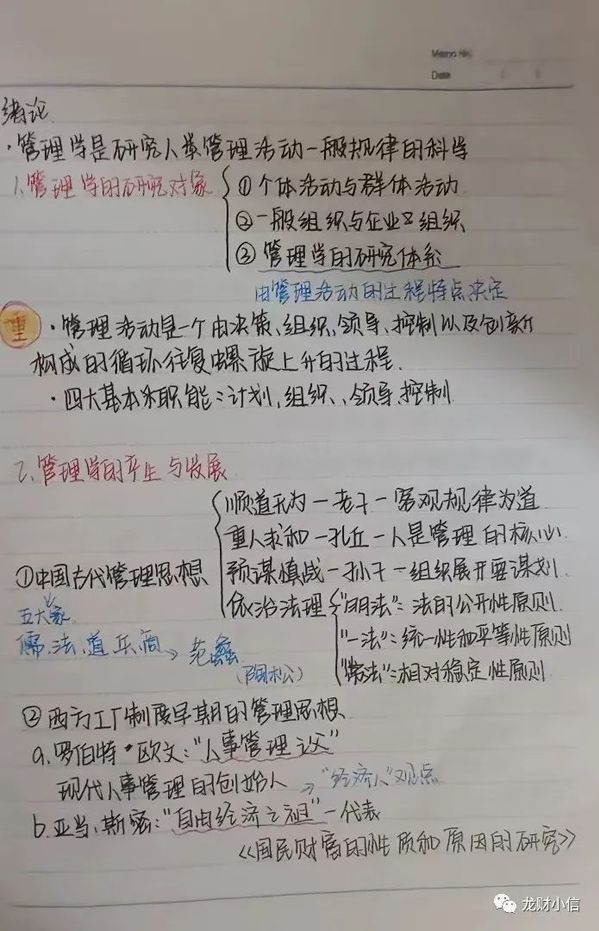 Memo No.
Date
绪论
·管理学是研究人类管理活动一般规律的科学
1.管理学的研究对象
①个体活动与群体活动
②一般组织与企业组织
③管理学的研究体系
由管理活动的过程特点决定
重
·管理活动是一个由决策、组织、领导、控制以及创新
构成的循环往复螺旋上升的过程.
·四大基本职能:计划,组织、领导、控制
2.管理学的产生与发展
①中国古代管理思想
顺道无为—老子—客观规律为道
重人求和—孔丘—人是管理的核心
预谋慎战—孙子—组织展开要谋划.
依治法理
"明法":法的公开性原则.
"一法":统一性和平等性原则
"常法":相对稳定性原则.
五大家
儒、法、道、兵、商→范蠡
②西方工厂制度早期的管理思想
a.罗伯特·欧文:"人事管理之父"
现代人事管理的创始人
→"经济人"观点
b.亚当.斯密:"自由经济之祖"—代表
《国民财富的性质和原因的研究》
龙财小信